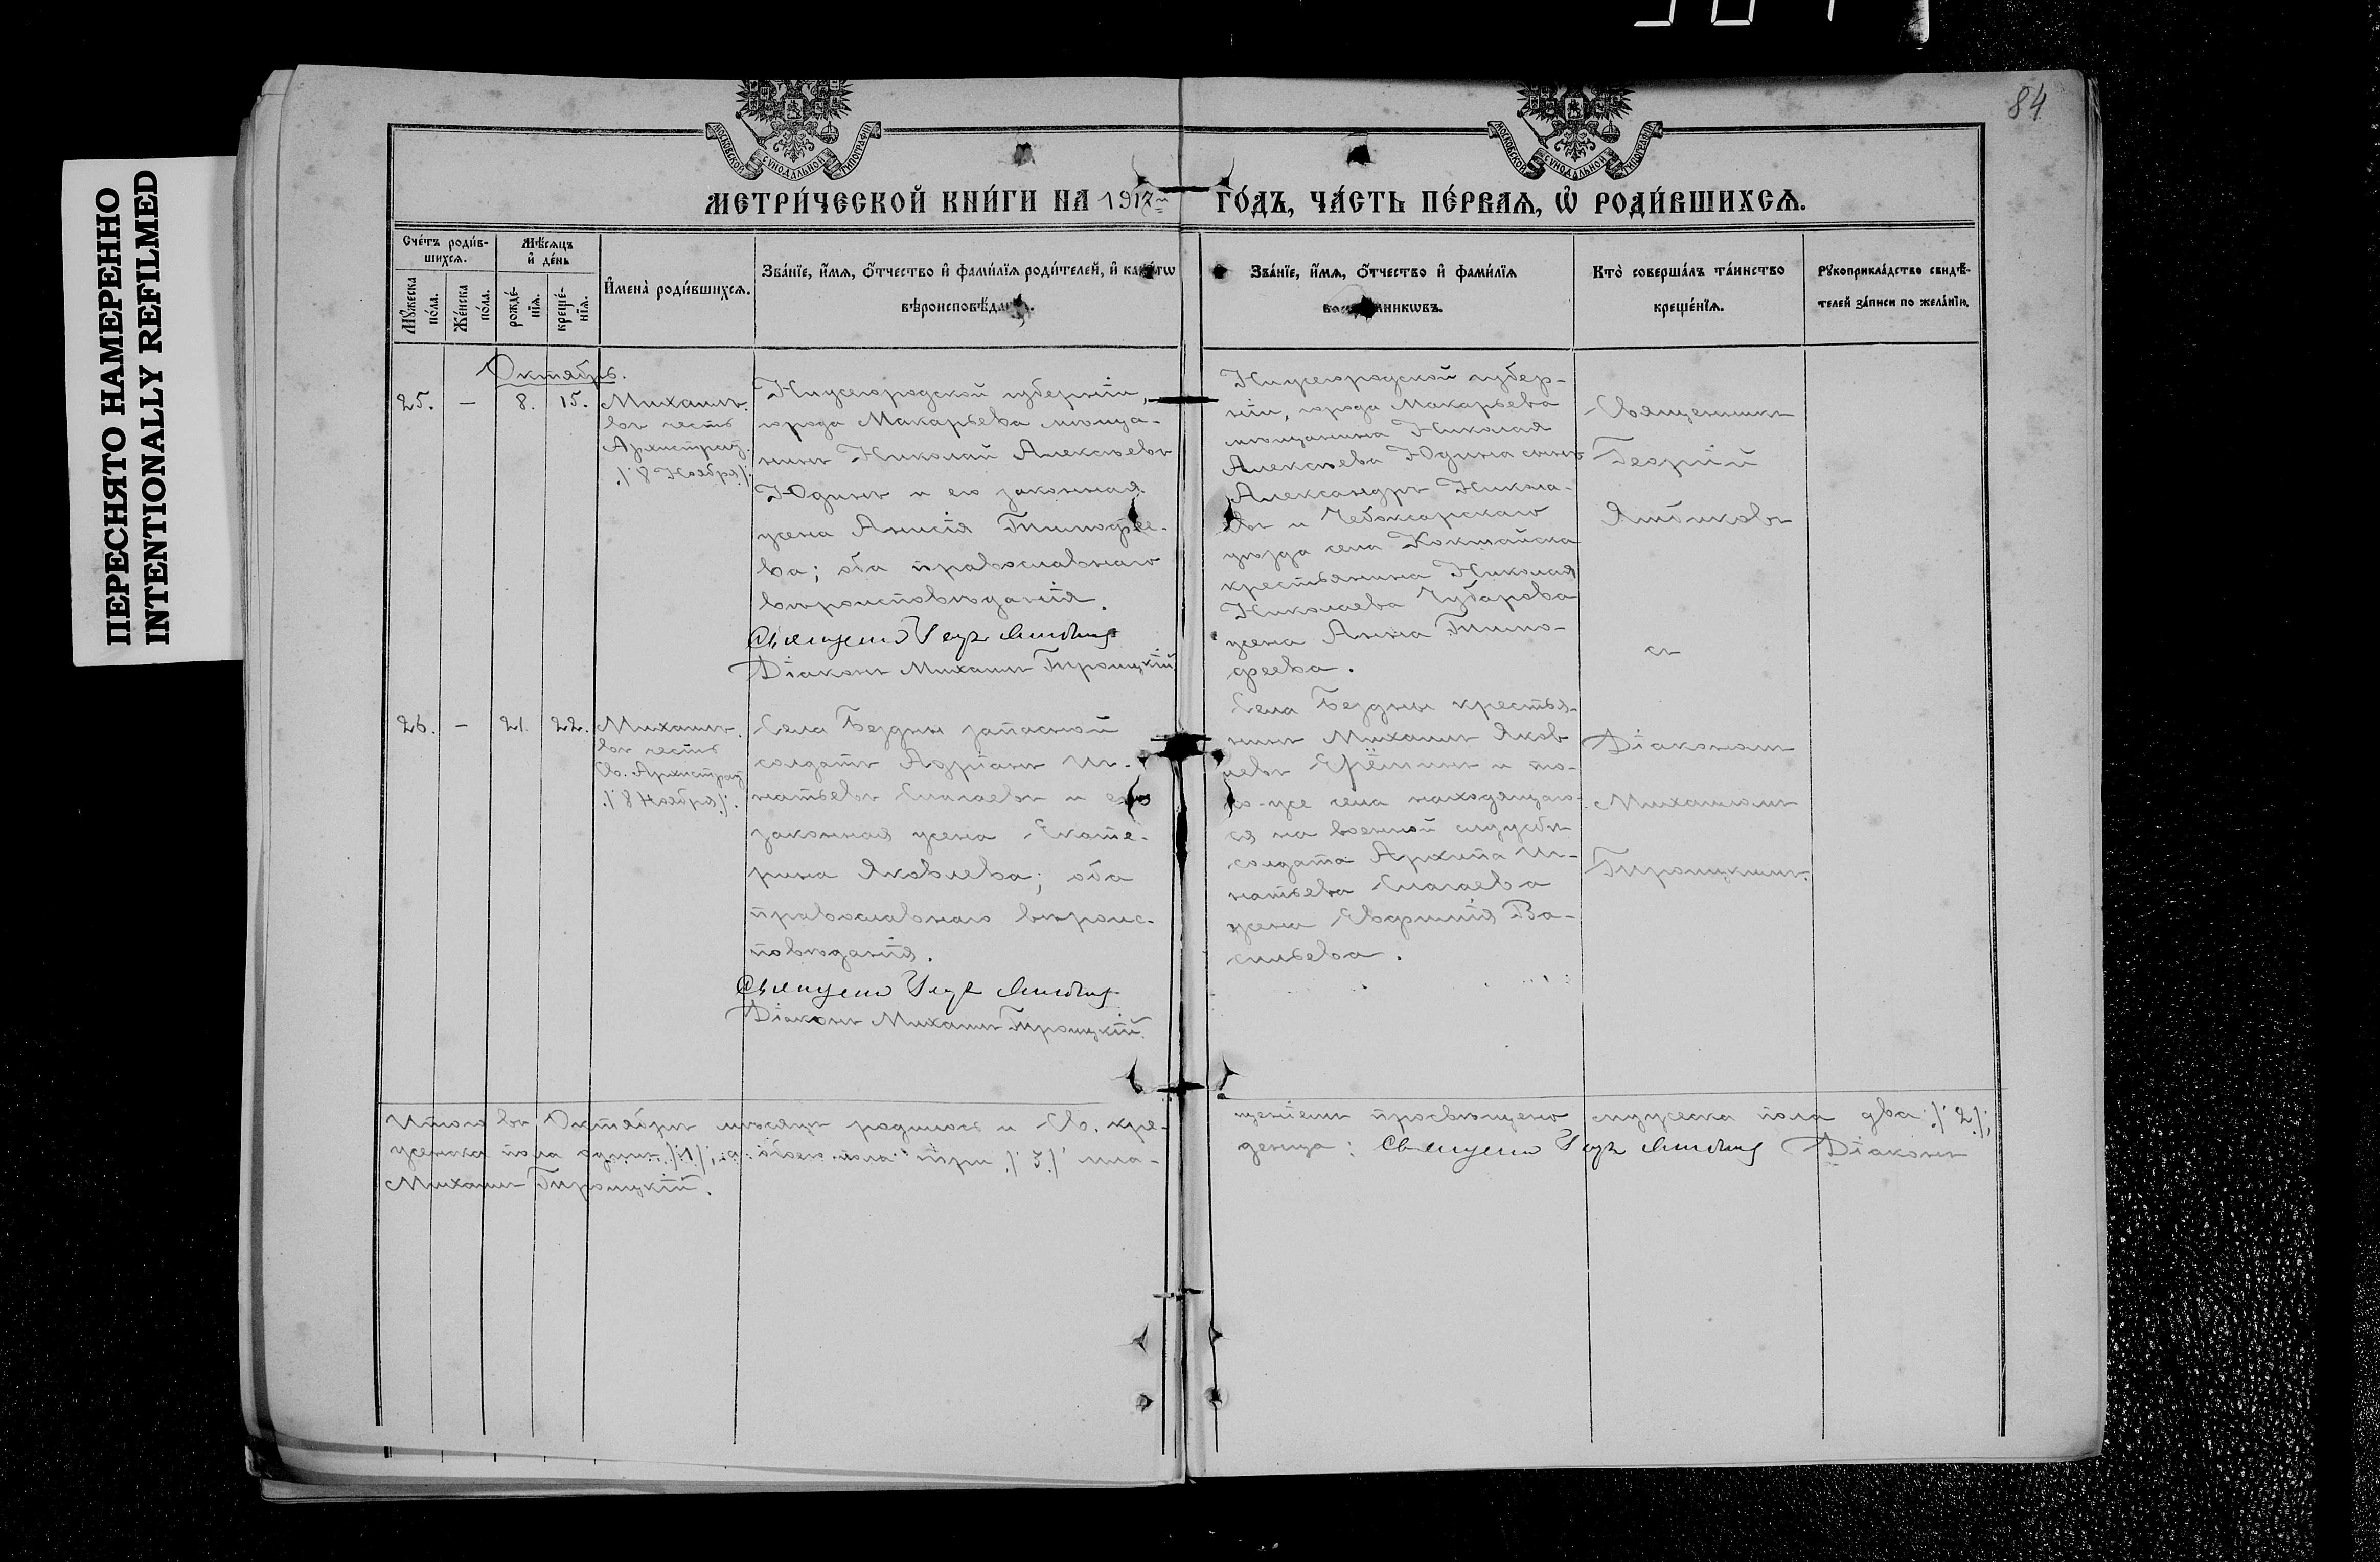 ПЕРЕСНЯТО НАМЕРЕННО
INTENTIONALLY REFILMED
84
МОСКОВСКОЙ СѴНОДАЛЬНОЙ ТИПОГРАФІИ
МОСКОВСКОЙ СѴНОДАЛЬНОЙ ТИПОГРАФІИ
МЕТРИ́ЧЕСКОЙ КНИ́ГИ НА 1917 ГО́ДЪ, ЧА́СТЬ ПЕ́РВАЯ, Ѡ҆ РОДИ́ВШИХСЯ.
Сче́тъ роди́в-
шихся.
Мꙋ́жеска
по́ла.
Же́нска
по́ла.
Мѣ́сяцъ
и҆ де́нь
рожде́-
нїя.
креще́-
нїя.
И҆мена̀ роди́вшихся.
Зва́нїе, и҆́мя, ѻ҆́тчество и҆ фами́лїя роди́телей, и҆ како́гѡ
вѣроисповѣ́да
Зва́нїе, и҆́мя, ѻ҆́тчество и҆ фами́лїя
Кто̀ соверша́лъ та́инство
креще́нїя.
Рꙋкоприкла́дство свидѣ́-
телей за́писи по жела́нїю.
Октябрь.
25. — 8. 15.
Михаилъ.
въ честь
Архистрат.
/8 Ноября/.
Нижегородской губерніи,
города Макарьева мѣща-
нинъ Николай Алексѣевъ
Юдинъ и его законная
жена Анисія Тимофее-
ва; оба православнаго
вѣроисповѣданія.
Священ
Діаконъ Михаилъ Троицкій.
Нижегородской губер-
ніи, города Макарьева
мѣщанина Николая
Алексѣева Юдина сынъ
Александръ Никола-
евъ и Чебоксарскаго
уѣзда села Кокшайска
крестьянина Николая
Николаева Чубарова
жена Анна Тимо-
феева.
Священникъ
Георгій
съ
26. — 21. 22.
Михаилъ.
въ честь
Св. Архистрат.
/8 Ноября/.
Села Бездны запасной
солдатъ Адріанъ Иг-
натьевъ и его
законная жена Екате-
рина Яковлева; оба
православнаго вѣроис-
повѣданія.
Священ
Діаконъ Михаилъ Троицкій.
Села Бездны крестья-
нинъ Михаилъ Яков
левъ Ерёминъ и то-
го-же села находящаго-
ся на военной службѣ
солдата Архипа Иг-
натьева
жена Евфимія Ва-
сильева.
Діакономъ
Михаиломъ
Троицкимъ.
Итого въ Октябрѣ мѣсяцѣ родилось и Св. кре-
щеніемъ просвѣщено мужеска пола два /2/,
женска пола одинъ /1/, а обоего пола три /3/ мла-
денца: Священ Діаконъ
Михаилъ Троицкій.